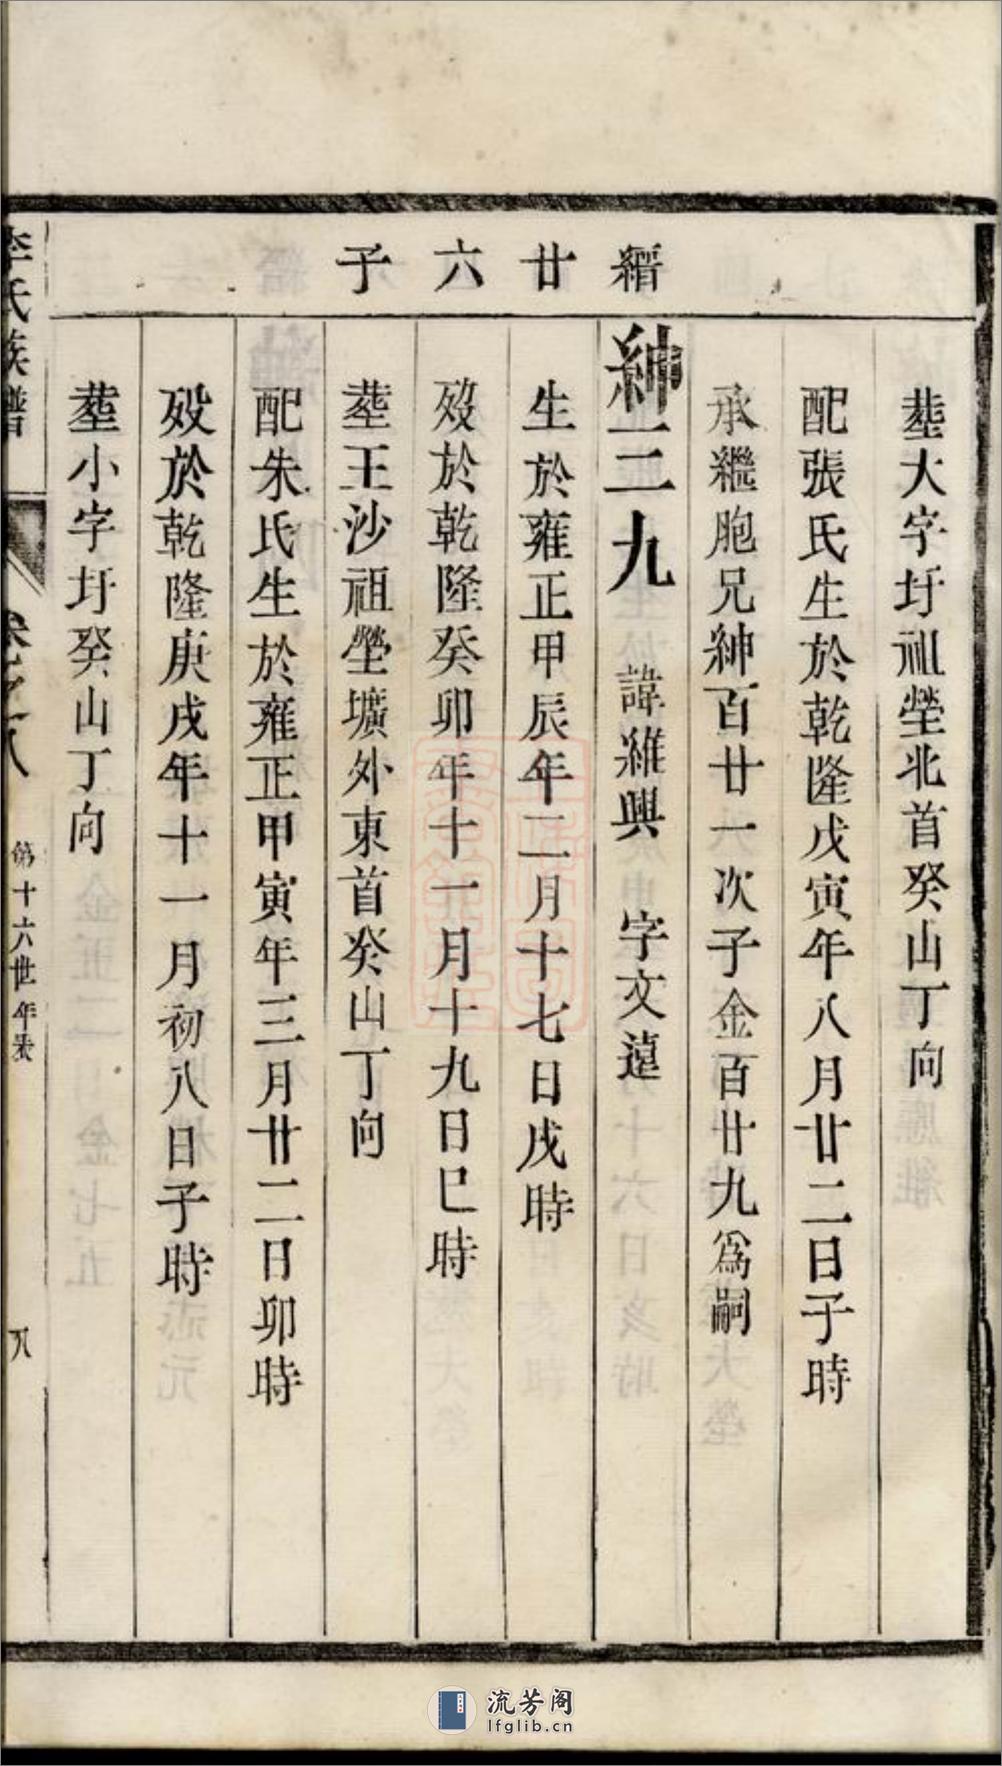 縉廿六子
塟大字圩祖塋北首癸山丁向
配張氏生於乾隆戊寅年八月廿二日子時
承繼胞兄紳百廿一次子金百廿九爲嗣
紳三九 諱維興 字文遠
生於雍正甲辰年二月十七日戌時
歿於乾隆癸卯年十一月十九日巳時
塟王沙祖塋壙外東首癸山丁向
配朱氏生於雍正甲寅年三月廿二日卯時
歿於乾隆庚戌年十一月初八日子時
塟小字圩癸山丁向
李氏族譜 卷之八 第十六世年表 八
流芳阁
lfglib.cn